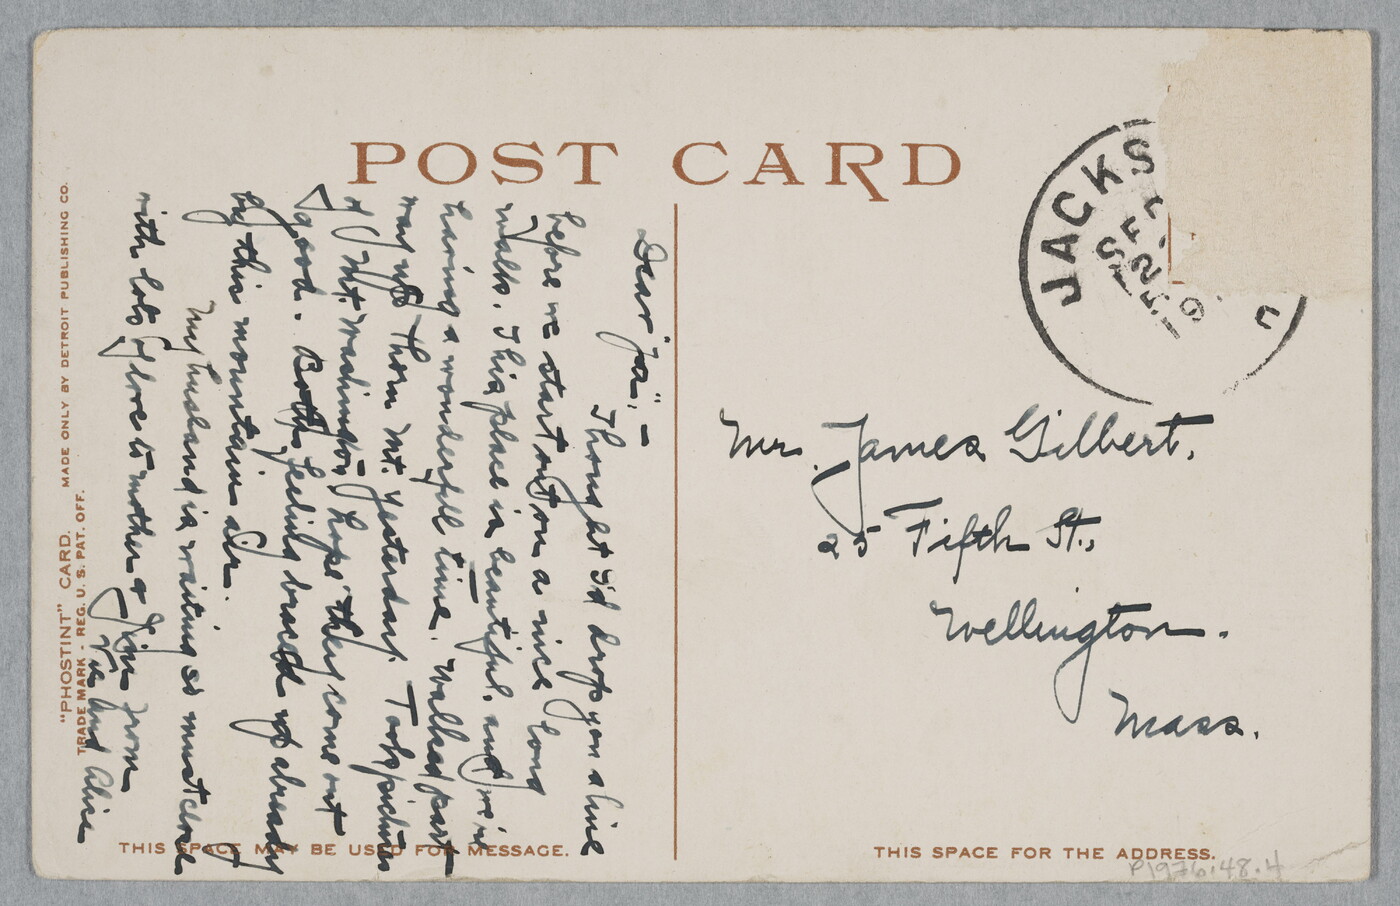 POST CARD
"PHOSTINT" CARD. MADE ONLY BY DETROIT PUBLISHING CO.
TRADE MARK - REG. U. S. PAT. OFF.
Dear "Pa":-
Thought I'd drop you a line
before we start out on a nice long
walk. This place is beautiful, and we're
having a wonderful time. Walked part
way up Thorn Mt. yesterday. Took pictures
of Mt. Washington, hope they come out
good. Both feeling braced up already
by this mountain air.
My husband is waiting so must close
with lots of love to mother & Jim from
Vic and Alice
THIS SPACE MAY BE USED FOR MESSAGE.
JACKS
SEP
2
19
Mr. James Gilbert,
25 Fifth St.,
Wellington.
Mass.
THIS SPACE FOR THE ADDRESS.
P1976.48.4